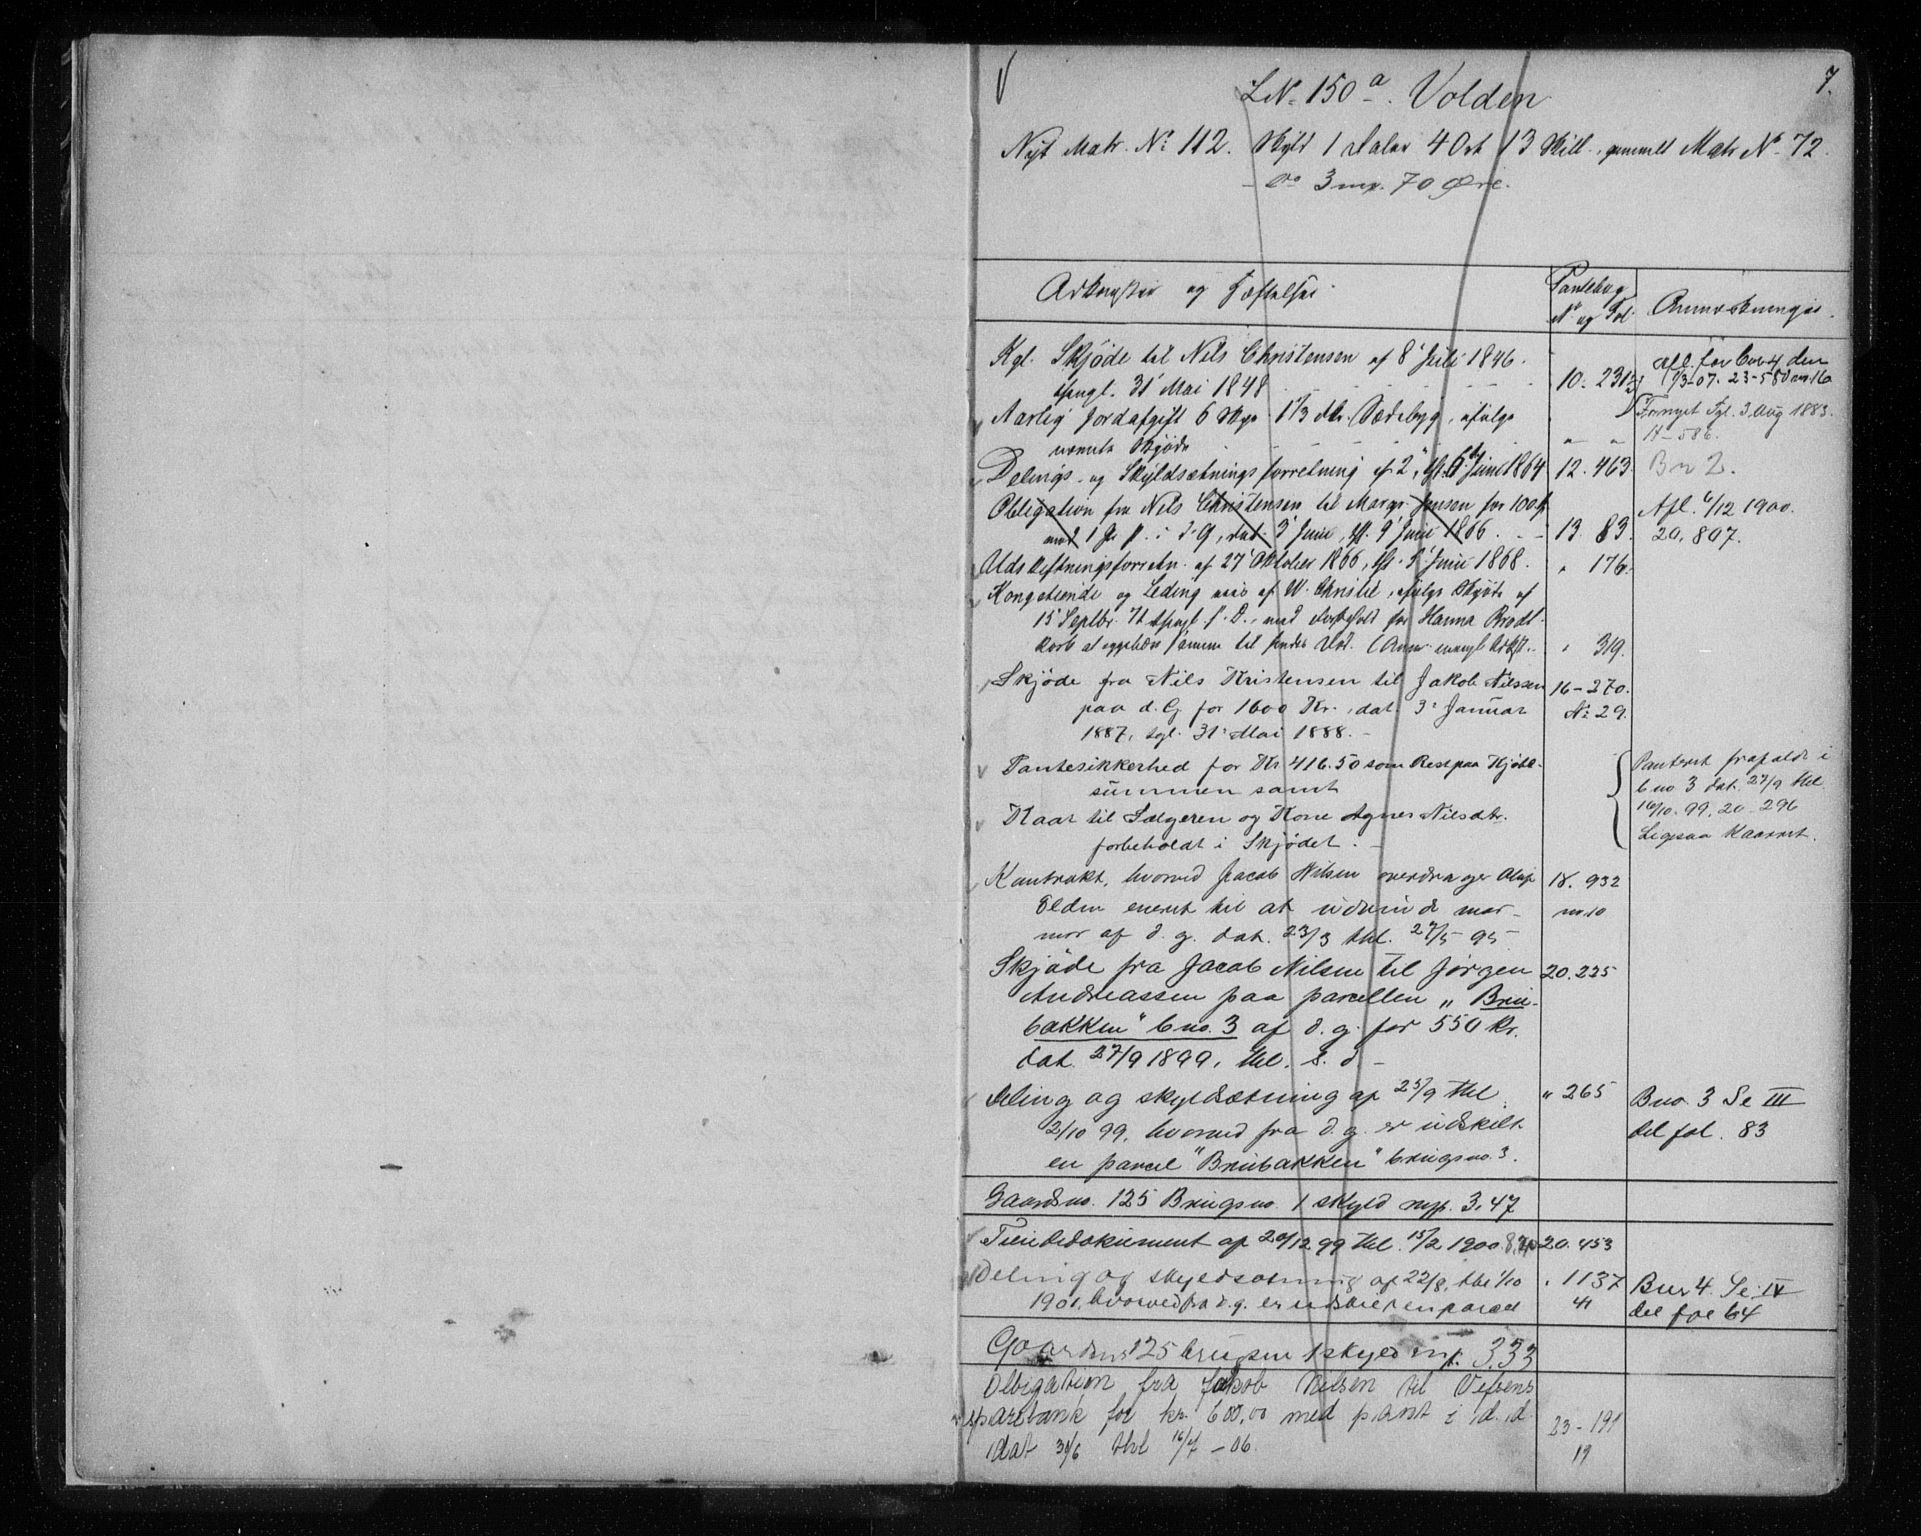 7.
LN. 150 a. Volden
Nyt Matr. No 112. Skyld 1 Daler 4 Ort 13 Skill., gammelt Matr No 72.
Do 3 mrk. 70 Øre.
Adkomster og Hæftelser
Pantebog
No og Fol.
Anmærkninger.
Kgl. Skjøde til Nils Christensen af 8 Juli 1846.
thingl. 31 Mai 1848
10. 231
Afl. for Bno 4 den
1/3-07. 23-580 no 16
Aarlig Jordafgift 6 Skpr 1 1/3 dkr. Sædebyg, ifølge
nævnte Skjøde
" "
Fornyet Tgl. 3 Aug 1883.
14-586.
Delings- og Skyldsætningsforretning af 2, thl. 6 Juni 1864
12. 463.
Bn 2.
Obligation fra Nils Christensen til Margr. Jensen for 100
med 1 Pr. p. i d. G, dat. 3 Juni, thl. 9 Juni 1866.
13. 83.
Afl. 6/12 1900.
20, 807.
Udskiftningsforretn. af 27 Oktober 1866, thl. 5 Juni 1868.
" 176.
Kongetiende og Leding af W. Christie, ifølge Skjøde af
15 Septbr. 71 thingl. s. D., med forbehold for Hanna Brodt-
korb at oppebære samme til hendes Død.
" 319.
Skjøde fra Nils Kristensen til Jakob Nilssen
paa d. G for 1600 Kr., dat. 3 Januar
1887, tgl. 31 Mai 1888.
16-270.
No 29.
Pantesikkerhed for Kr 416.50 som Rest paa Kjøbe-
summen samt
Panteret frafaldt i
bno 3 dat. 27/9 thl
16/10. 99. 20-296
Kaar til Sælgeren og Kone Agnes Nilsdtr.
forbeholdt i Skjødet.
Ligesaa Kaarret.
Kontrakt, hvorved Jacob Nilsen overdrager Oluf
Olden eneret til at udvinde mar-
mor af d. g. dat. 23/3 thl. 27/5 95
18. 932
no 10
Skjøde fra Jacob Nilsen til Jørgen
Andreassen paa parcellen „Bru-
bakken" bno. 3 af d. g. for 550 kr.
dat. 27/9 1899, thl. s. d
20. 235
Deling og skyldsætning af 25/9 thl
2/10 99, hvorved fra d. g. er udskilt
en parcel "Brubakken" brugsno. 3.
" 265
Bno. 3 Se III
del fol. 83
Gaardsno. 125 Brugsno. 1 skyld myp. 3.47
Tiendedokument af 20/12 99 thl. 15/2 1900
20. 453
Deling og skyldsætning af 22/8, thl 1/10
1901, hvorved fra d. g. er udskilt en parcel
" 1137
41
Bnr 4. Se IV
del fol 64
Gaardsno 125 brugsno 1 skyld myp. 3.33
Obligation fra Jakob Nilsen til Vefsens
sparebank for kr. 600,00 med pant i d. d.
dat 30/6 thl 16/7 - 06.
23-191
19